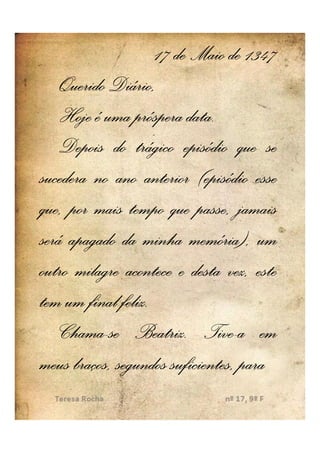 17 de Maio de 1347
Querido Diário,
Hoje é uma próspera data.
Depois do trágico episódio que se
sucedera no ano anterior (episódio esse
que, por mais tempo que passe, jamais
será apagado da minha memória), um
outro milagre acontece e desta vez, este
tem um final feliz.
Chama-se Beatriz. Tive-a em
meus braços, segundos suficientes, para
Teresa Rocha nº 17, 9º F